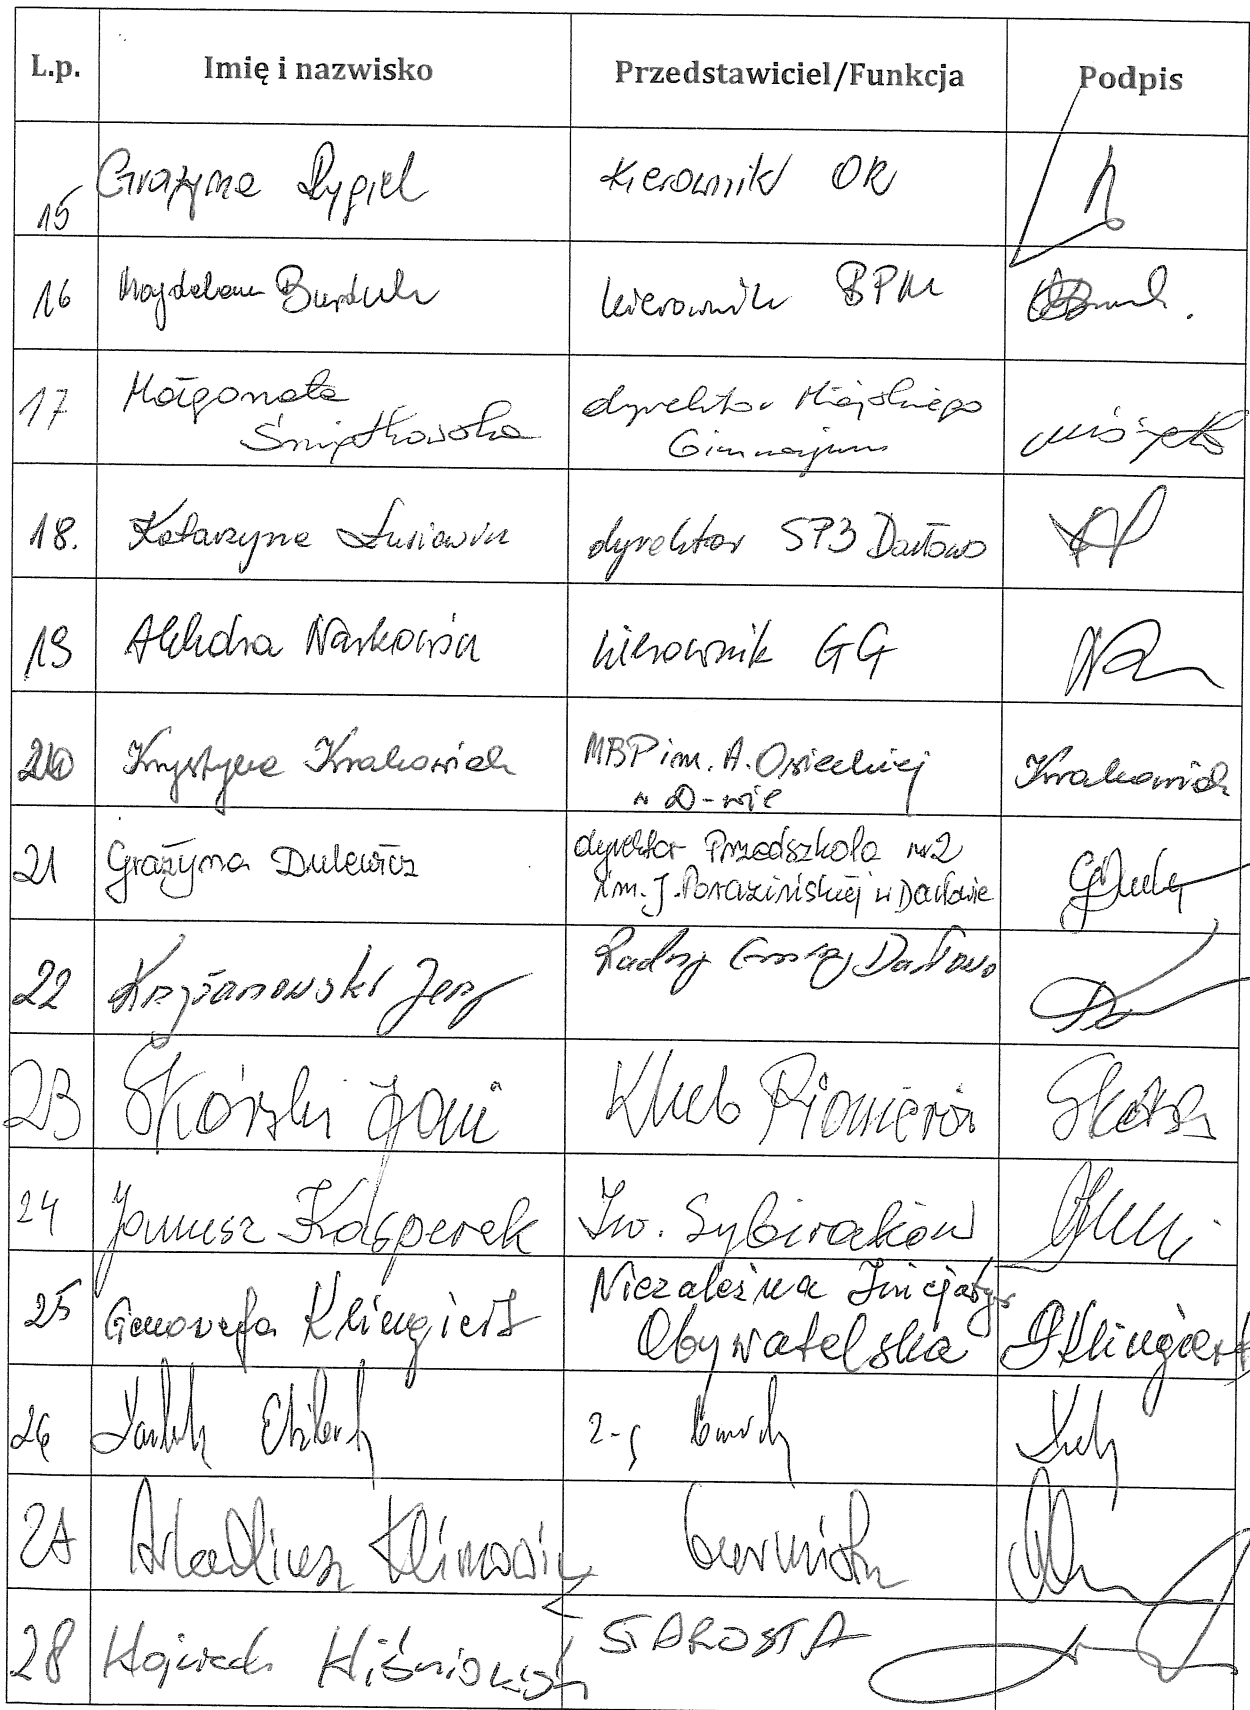 L.p. Imię i nazwisko Przedstawiciel/Funkcja Podpis
15 Grażyna Rygiel Kierownik OR
16 Magdalena Burduk kierownik BPM
17 Małgorzata dyrektor Miejskiego
Świątkowska Gimnazjum
18. Katarzyna dyrektor SP3 Darłowo
19 kierownik GG
20 Krystyna Krakowiak MBP im. A. Osieckiej Krakowiak
w D-wie
21 Grażyna Dulewicz dyrektor Przedszkola nr 2
im. J. Porazińskiej w Darłowie
22 Krzyżanowski Jerzy Radny Darłowo
23 Skórski Klub Pionierów
24 Janusz Kasperek Zw. Sybiraków
25 Genowefa Klingiert Niezależna Inicjatywa
Obywatelska GKlingiert
26 z-ca
27 Arkadiusz Klimowicz burmistrz
28 Wojciech Wiśniowski STAROSTA